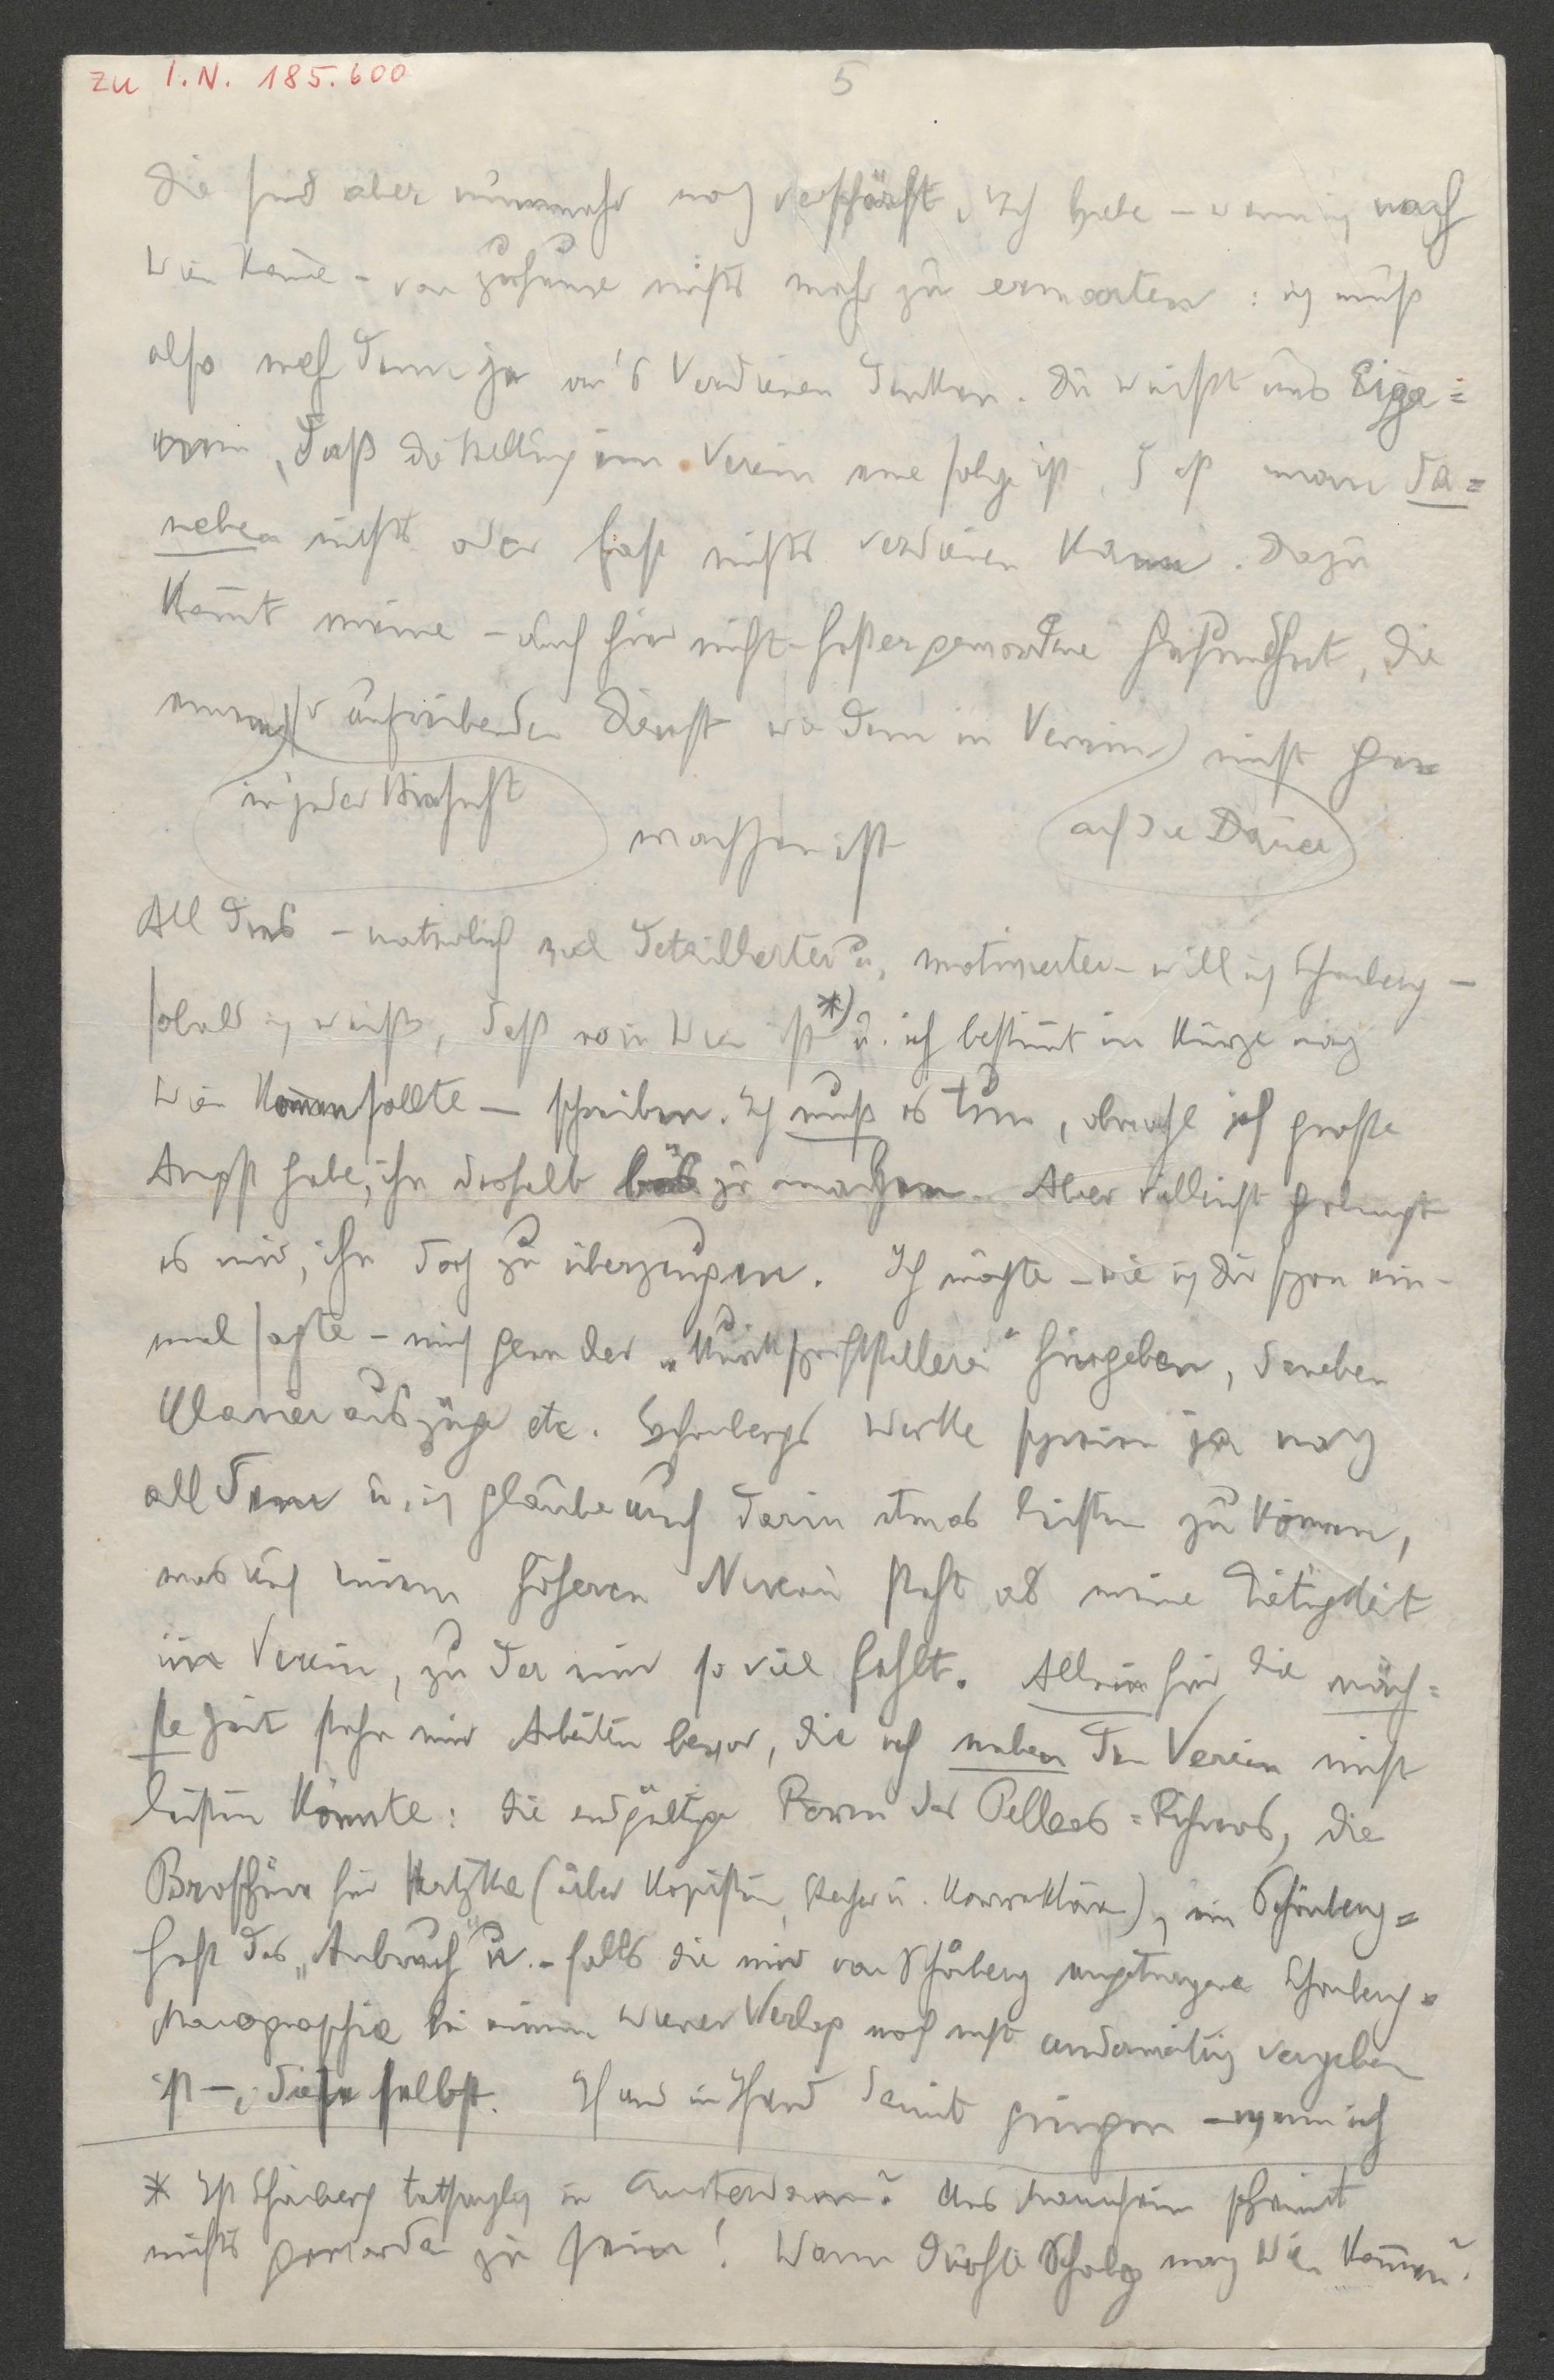 zu I.N. 185.600
5
Die sind aber nunmehr noch verschärft. Ich habe – wenn ich nach
Wien kom̄e – von zuhause nichts mehr zu erwarten: ich muß
also mehr denn je an's Verdienen denken. Du weißt aus Eige=
nem, daß die Stellung im Verein eine solche ist, daß man da=
neben nichts oder fast nichts verdienen kann. Dazu
kom̄t meine – auch hier nicht besser gewordene Gesundheit, die
einem so aufreibenden Dienst wie dem im Verein nicht ge
in jeder Hinsicht
wachsen ist
auf die Dauer
All dies – natürlich viel detaillierter u. motivierter – will ich Schönberg –
sobald ich weiß, daß er in Wien ist *) u. ich bestim̄t in Kürze nach
Wien kom̄en sollte – schreiben. Ich muß es tun, obwohl ich große
Angst habe, ihn deshalb bös zu machen. Aber vielleicht gelingt
es mir, ihn doch zu überzeugen. Ich möchte – wie ich Dir schon ein-
mal sagte – mich gern der „Musikschriftstellerei" hingeben, daneben
Klavierauszüge etc. Schönbergs Werke schreien ja nach
all dem u. ich glaube auch darin etwas leisten zu können,
was auf einem höheren Niveau steht als meine Tätigkeit
im Verein, zu der mir so viel fehlt. Allein für die näch=
ste Zeit stehn mir Arbeiten bevor, die ich neben dem Verein nicht
leisten könnte: die endgültige Form des Pelleas=Führers, die
Broschüre für Hertzka (über Kopisten, Stecher u. Korrektoren), ein Schönberg=
heft des „Anbruch" u. – falls die mir von Schönberg angetragene Schönberg=
Monographie bei einem Wiener Verlag noch nicht anderweitig vergeben
ist –, diese selbst. Hand in Hand damit gingen – wenn ich
* Ist Schönberg tatsächlich in Amsterdam? Aus Mannheim scheint
nichts geworden zu sein! Wann dürfte Schbg nach Wien kom̄en?